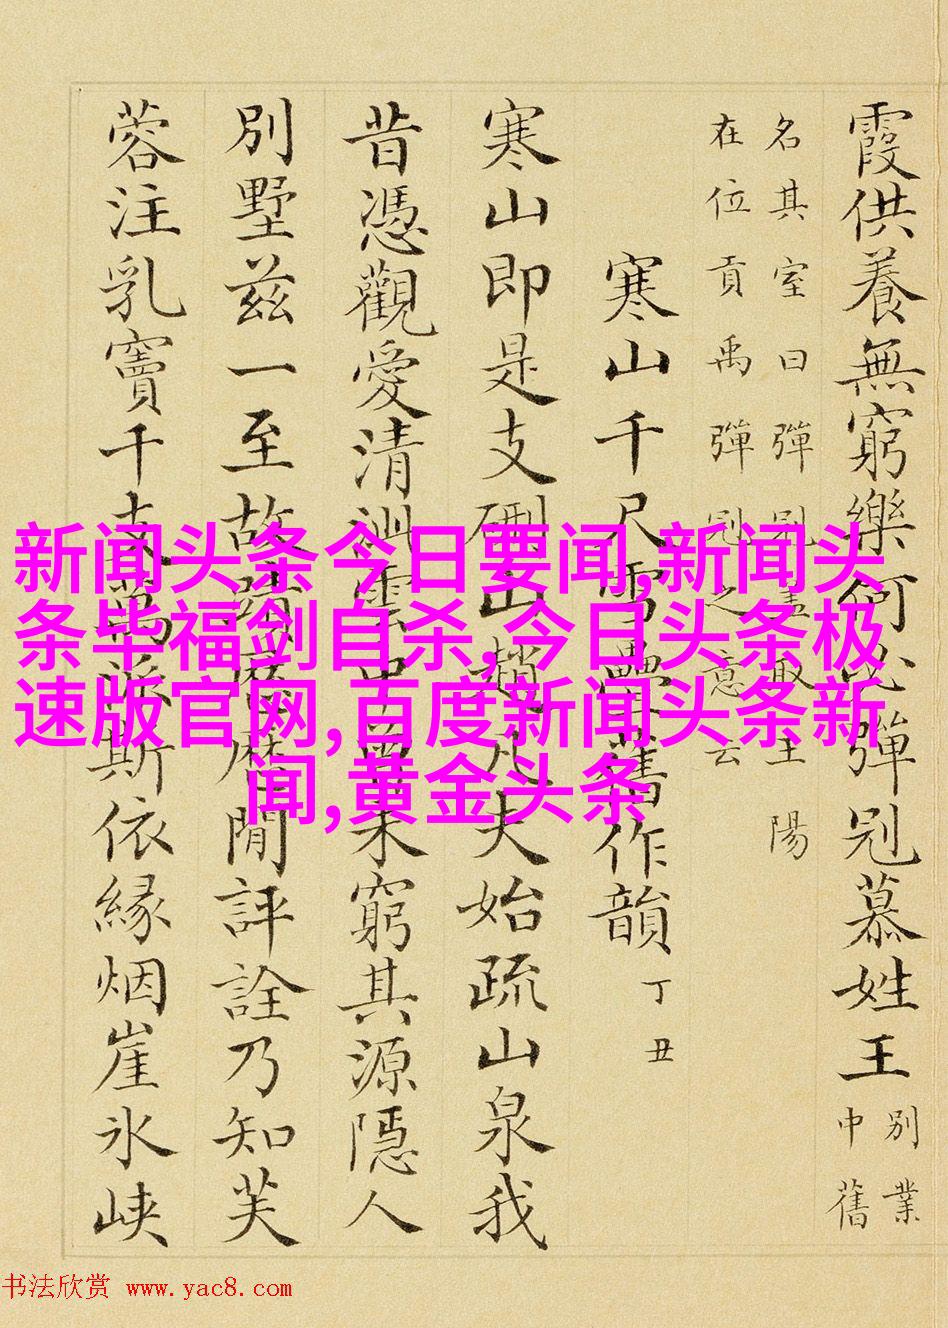 霞供養無窮樂何必彈冠慕姓王
別業
中舊
名其室曰彈冠盖取王陽
在位貢禹彈冠之意云
寒山千尺雪疊舊作韻 丁丑
寒山即是支硎山趙凡夫始疏山泉我
昔憑觀愛清雲中未窮其源隱人
別墅兹一至故蹟歷歷閒評詮乃知芙
蓉注乳竇千支萬派斯依緣烟崖氷峽
新闻头条今日要闻,新闻头
条毕福剑自杀,今日头条极
速版官网,百度新闻头条新
闻,黄金头条
书法欣赏 www.yac8.com